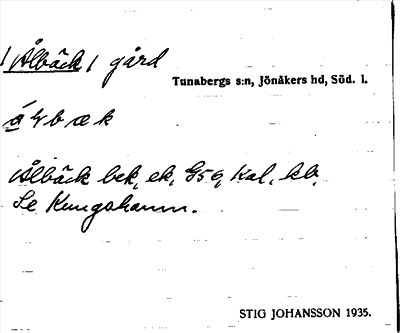 /Ålbäck/ gård
Tunabergs s:n, Jönåkers hd, Söd. l.
Ålbäck bek, ek, G59, Kal, kb.
Se Kungshamn.
STIG JOHANSSON 1935.